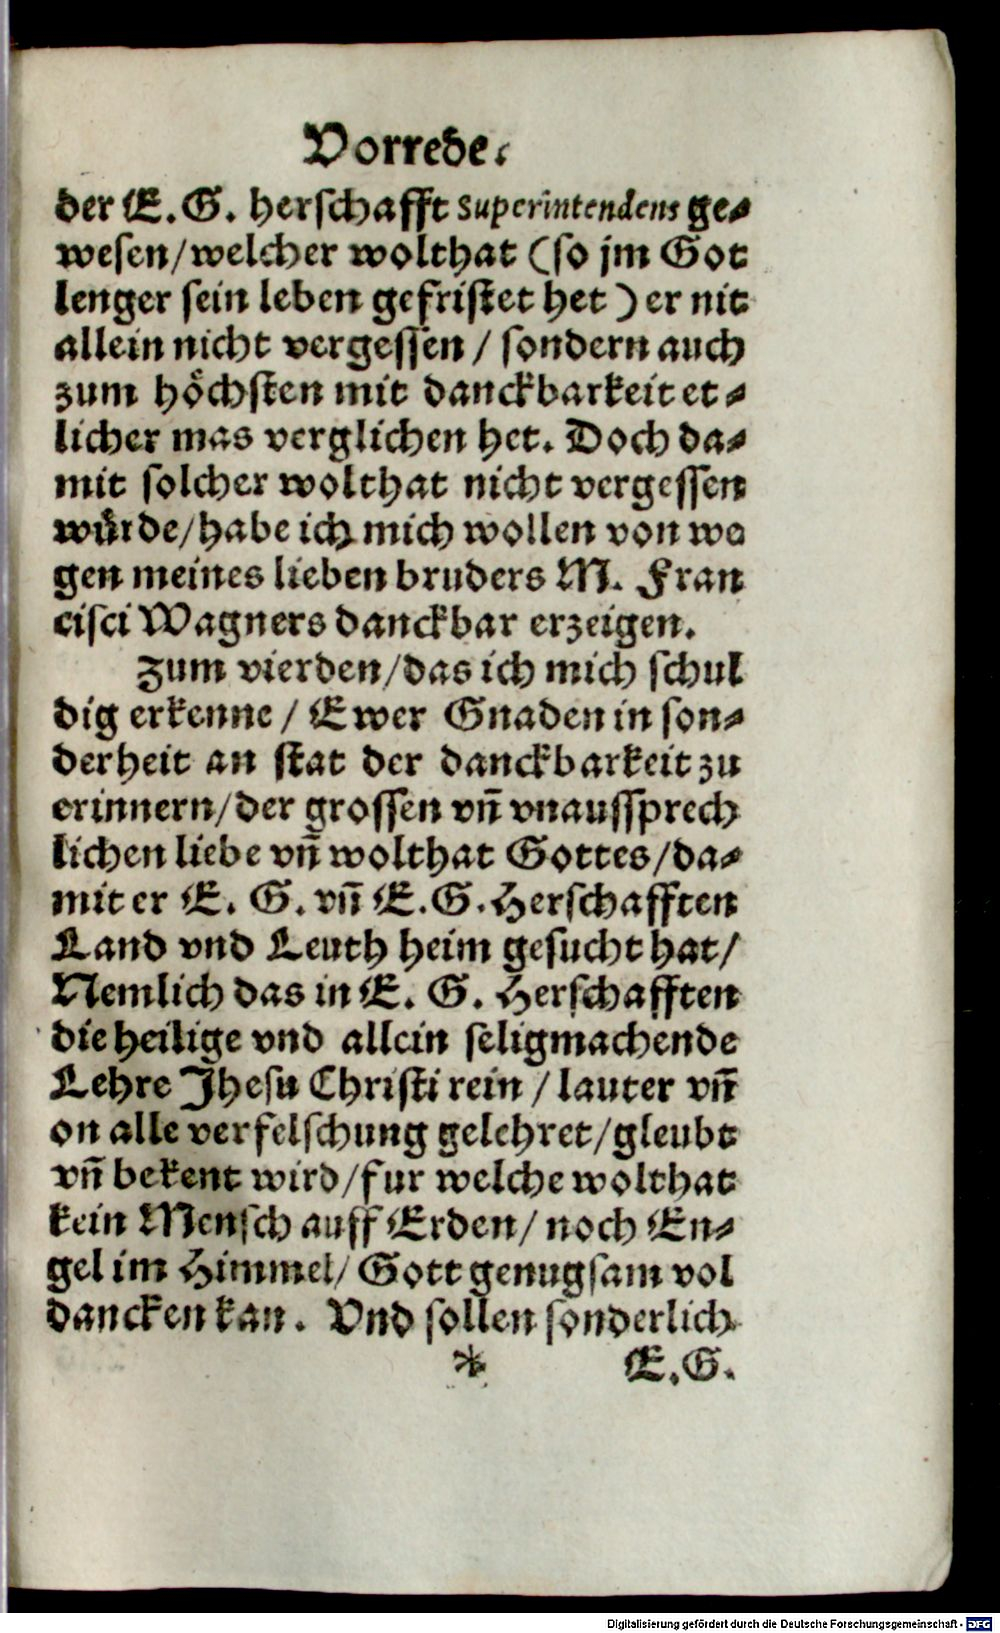 Vorrede.
der E. G. herschafft Superintendens ge⸗
wesen/welcher wolthat (so jm Got
lenger sein leben gefristet het) er nit
allein nicht vergessen / sondern auch
zum hoͤchsten mit danckbarkeit et⸗
licher mas verglichen het. Doch da⸗
mit solcher wolthat nicht vergessen
wuͤrde/habe ich mich wollen von we
gen meines lieben bruders M. Fran
cisci Wagners danckbar erzeigen.
Zum vierden/das ich mich schul
dig erkenne / Ewer Gnaden in son⸗
derheit an stat der danckbarkeit zu
erinnern/der grossen vñ vnaussprech
lichen liebe vñ wolthat Gottes/da⸗
mit er E. G. vñ E. G. Herschafften
Land vnd Leuth heim gesucht hat/
Nemlich das in E. G. Herschafften
die heilige vnd allein seligmachende
Lehre Jhesu Christi rein / lauter vñ
on alle verfelschung gelehret/gleubt
vñ bekent wird/fur welche wolthat
kein Mensch auff Erden/ noch En⸗
gel im Himmel/ Gott genugsam vol
dancken kan. Vnd sollen sonderlich
* E. G.
Digitalisierung gefördert durch die Deutsche Forschungsgemeinschaft - DFG